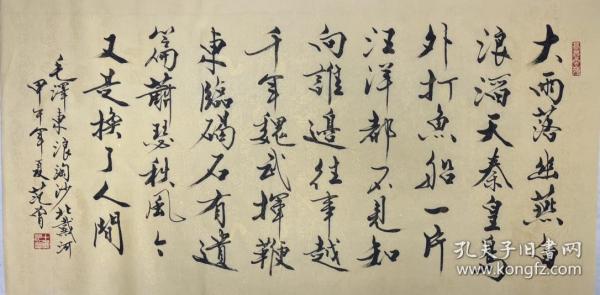 大雨落幽燕白
浪滔天秦皇島
外打魚船一片
汪洋都不見知
向誰邊往事越
千年魏武揮鞭
東臨碣石有遺
篇蕭瑟秋風今
又是換了人間
毛澤東浪淘沙北戴河
甲午年夏范
孔夫子旧书网
www.kongfz.com